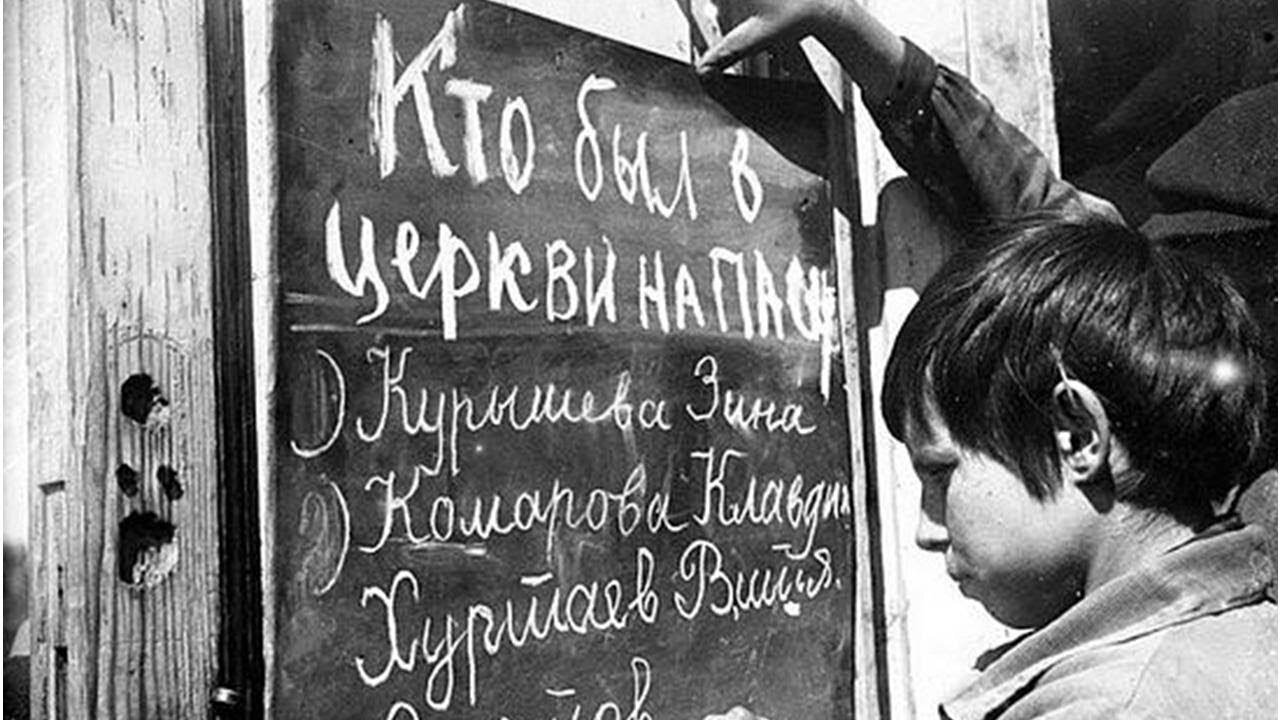 Кто был в
церкви на пасху
1) Курышева Зина
2) Комарова Клавдия
Хуртаев Витя.